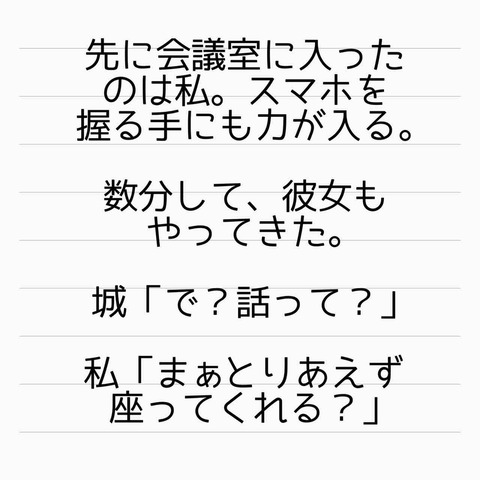 先に会議室に入った
のは私。スマホを
握る手にも力が入る。
数分して、彼女も
やってきた。
城「で？話って？」
私「まぁとりあえず
座ってくれる？」